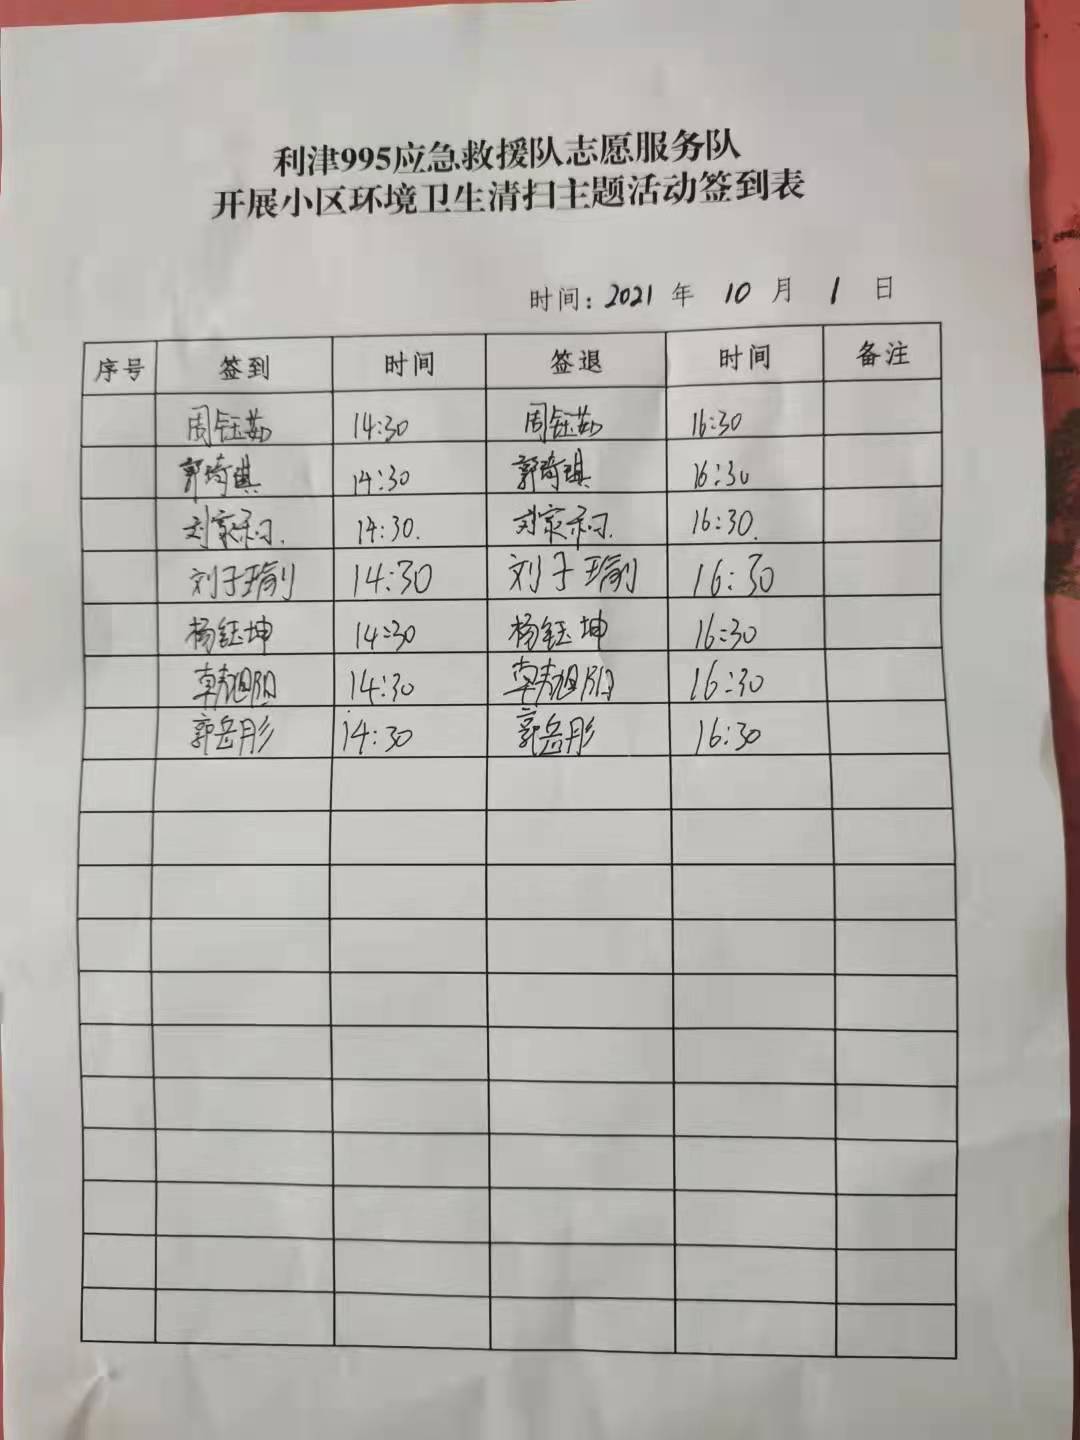 利津995应急救援队志愿服务队
开展小区环境卫生清扫主题活动签到表
时间：2021 年 10 月 1 日
序号 签到 时间 签退 时间 备注
周钰茹 14:30 周钰茹 16:30
郭琦琪 14:30 郭琦琪 16:30
刘家禾 14:30. 刘家禾 16:30.
刘子瑜 14:30 刘子瑜 16:30
杨钰坤 14:30 杨钰坤 16:30
韩旭阳 14:30 韩旭阳 16:30
郭岳彤 14:30 郭岳彤 16:30